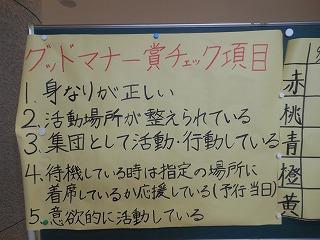 グッドマナー賞チェック項目
1. 身なりが正しい
2. 活動場所が整えられている
3. 集団として活動・行動している
4. 待機している時は指定の場所に
着席しているか応援している(予行当日)
5. 意欲的に活動している
赤
桃
青
橙
黄